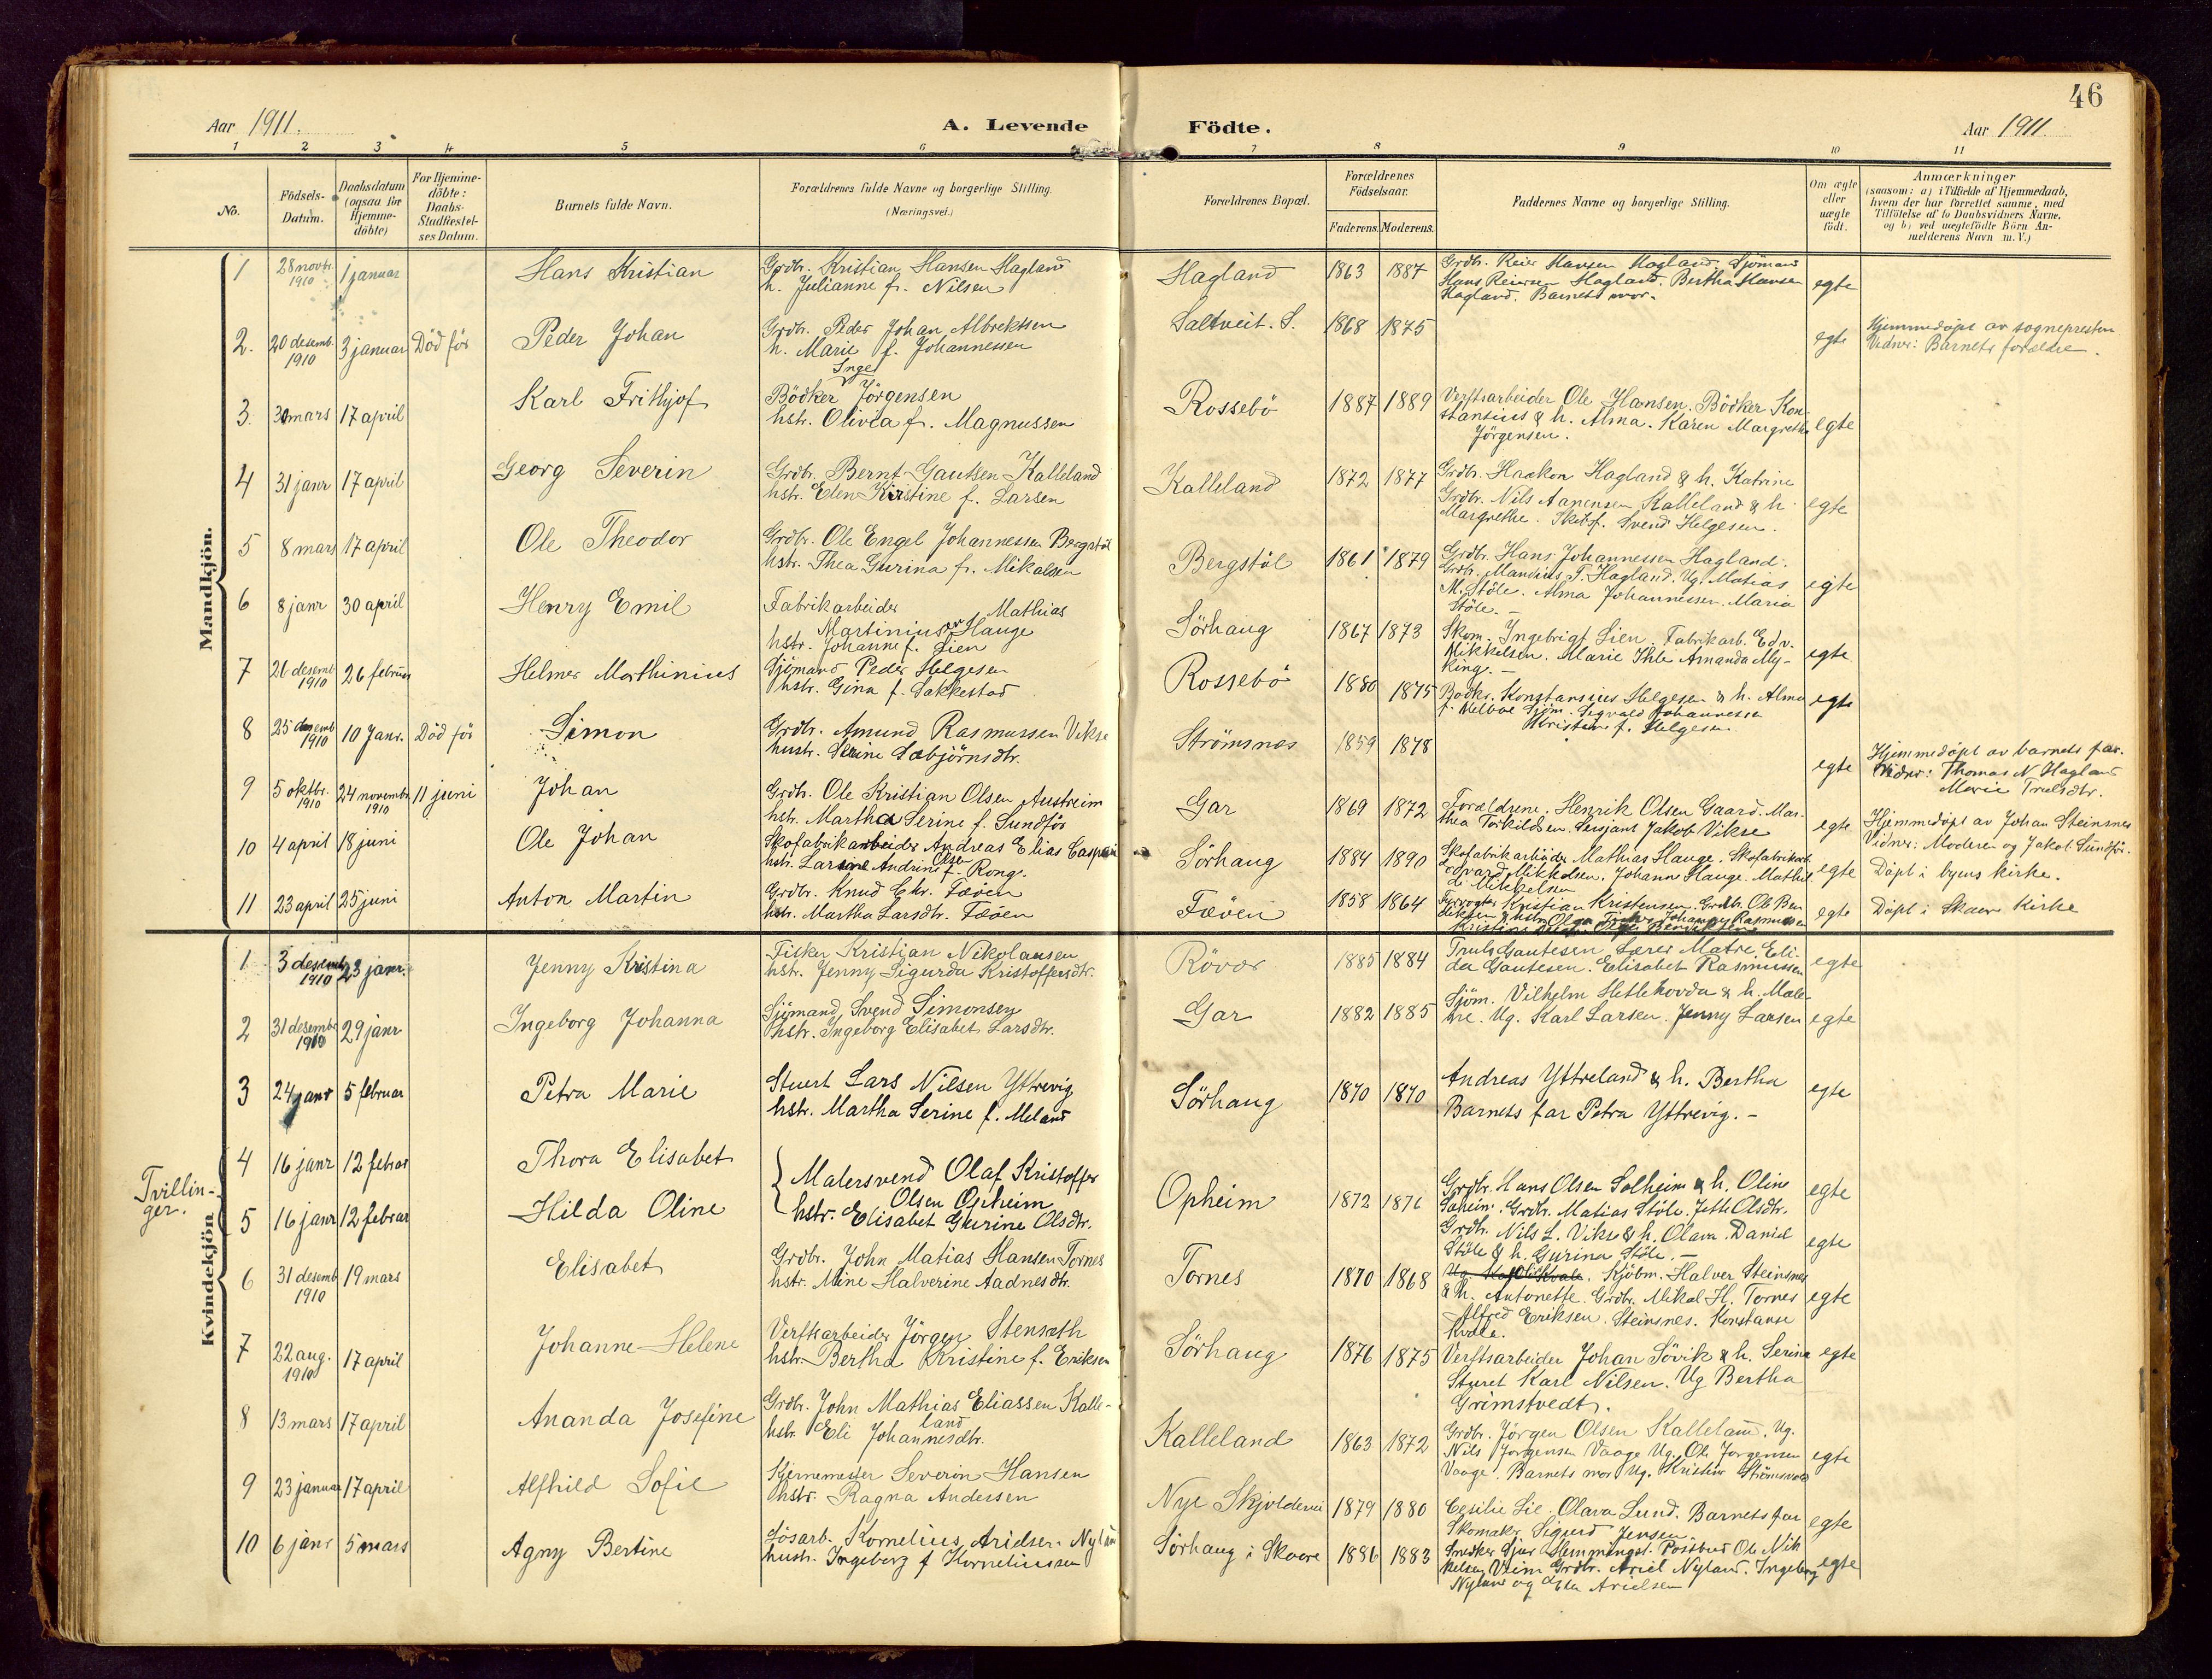 46
Aar 1911.
A. Levende Födte.
Aar 1911.
1 2 3 4 5 6 7 8 9 10 11
No.
Födsels-
Datum.
Daabsdatum
(ogsaa for
Hjemme-
döbte)
For Hjemme-
döbte:
Daabs-
Stadfæstel-
ses Datum.
Barnets fulde Navn.
Forældrenes fulde Navne og borgerlige Stilling.
(Næringsvei.)
Forældrenes Bopæl.
Forældrenes
Födselsaar.
Faderens. Moderens.
Faddernes Navne og borgerlige Stilling.
Om ægte
eller
uægte
födt.
Anmærkninger
(saasom: a) i Tilfælde af Hjemmedaab,
hvem der har forrettet samme, med
Tilföielse af to Daabsvidners Navne.
og b) ved uægtefödte Börn An-
melderens Navn m. V.)
Mandkjön.
1 28 novbr. 1910 1 januar Hans Kristian
Grdbr. Kristian Hansen Hagland
h. Julianne f. Nilsen
Hagland 1863 1887
Grdbr. Reier Hansen Hagland. Sjömand
Hans Reiersen Hagland. Bertha Hansen
Hagland. Barnets mor.
egte
2. 20 desemb. 1910 3 januar Död för Peder Johan
Grdbr. Peder Johan Albrektsen
h. Marie f. Johannessen
Saltveit. S. 1868 1875 egte
Hjemmedöpt av sognepresten
Vidner: Barnets forældre.
3. 30 mars 17 april Karl Frithjof
Inge
Bödker Jörgensen
hstr. Olivia f. Magnussen
Rossebö 1887 1889
Verftsarbeider Ole Hansen. Bödker Kon-
stansius & h. Alma. Karen Margrethe
Jörgensen.
egte
4 31 janr 17 april Georg Severin
Grdbr. Bernt Gautsen Kalleland
hstr. Elen Kirstine f. Larsen
Kalleland 1872 1877
Grdbr. Haakon Hagland & h. Katrine
Grdbr. Nils Aanensen Kalleland & h.
Margrethe. Svend Helgesen.
egte
5 8 mars 17 april Ole Theodor
Grdbr. Ole Engel Johannessen Bergstöl
hstr. Thea Gurina f. Mikalsen
Bergstöl 1861 1879
Grdbr. Hans Johannessen Hagland.
Grdbr. Mandius T. Hagland. Ug. Matias
M. Stöle. Alma Johannessen. Maria
Stöle. –
egte
6 8 janr 30 april Henry Emil
Fabrikarbeider Mathias
Martinius Hauge
hstr. Johanne f. Lien
Sörhaug 1867 1873
Skom. Ingebrigt Lien. Fabrikarb. Edv.
Mikkelsen. Marie Ihle Amanda My-
king. –
egte
7 26 desemb 1910 26 februar Helmer Marthinius
Sjömand Peder Helgesen
hstr. Gina f. Sakkestad
Rossebö 1880 1875
Bödker. Konstansius Helgesen & h. Alma
f. Sjöm. Sigvald Johannessen
Kristine f. Helgesen
egte
8 25 desemb 1910 10 Janr. Död för Simon
Grdbr. Amund Rasmussen Vikse
hustr. Sæbjörnsdtr.
Strömsnæs 1859 1878 egte
Hjemmedöpt av barnets far.
Vidner: Thomas N. Hagland
Marie Trulsdtr.
9 5 oktbr. 1910 24 novembr. 1910 11 juni Johan
Grdbr. Ole Kristian Olsen Austreim
hstr. Martha Serine f. Sundför
Gar 1869 1872
Forældrene. Henrik Olsen Gaard. Mar-
thea Torkildsen. Sersjant Jakob Vikse
egte
Hjemmedöpt av Johan Steinsnes
Vidner: Moderen og Jakob Sundför.
10 4 april 18 juni Ole Johan
Skofabrikarbeider Andreas Elias Caspari
Olsen
hstr. Larsine Andrine f. Rong.
Sörhaug 1884 1890
Skofabrikarbeider Mathias Hauge. Skofabrikarb.
Edvard Mikkelsen. Johanne Hauge. Mathil-
de Mikkelsen
egte Döpt i byens kirke.
11 23 april 25 juni Anton Martin
Grdbr. Knud Chr. Fæöen
hstr. Martha Larsdtr. Fæöen
Fæöen 1858 1864
Fyrvogter Kristian Kristensen. Grdbr. Ole Ben-
diksen & hstr. Olga Johannes Rasmussen
egte Döpt i Skaare Kirke
Kvindekjön
1 3 desemb 1910 23 janr. Jenny Kristina
Fisker Kristian Nikolausen
hstr. Jenny Sigurda Kristoffersdtr.
Rövær 1885 1884
Truls Gautesen. Lærer Matre. Eli-
da Gautesen. Elisabet Rasmussen
egte
2 31 desembr 1910 29 janr Ingeborg Johanna
Sjömand Svend Simonsen
hstr. Ingeborg Elisabet Larsdtr.
Gar 1882 1885
Sjöm. Vilhelm Hetlehovda & h. Male-
ne. Ug. Karl Larsen. Jenny Larsen
egte
3 24 janr 5 februar Petra Marie
Stuert Lars Nilsen Yttrevig
hstr. Martha Serine f. Meland
Sörhaug 1870 1870
Andreas Yttreland & h. Bertha
Barnets far Petra Yttrevig. –
egte
Tvillin-
ger.
4 16 janr 12 febrar Thora Elisabet
5 16 janr 12 februar Hilda Oline
Malersvend Olaf Kristoffer
Olsen Opheim
hstr. Elisabet Gurine Olsdtr.
Opheim 1872 1876
Grdbr. Hans Olsen Solheim & h. Oline
Solheim. Grdbr. Matias Stöle. Jette Olsdtr.
egte
Grdbr. Nils L. Vikse & h. Olava. Daniel
Stöle & h. Gurina Stöle. –
egte
6 31 desemb 1910 19 mars Elisabet
Grdbr. John Matias Hansen Tornes
hstr. Mine Halverine Aadnesdtr.
Tornes 1870 1868
Kjöbm. Halver Steinsnes
& h. Antonette. Grdbr. Mikal H. Tornes
Alfred Eriksen. Steinsnes. Konstanse
Kvale.
egte
7 22 aug. 1910 17 april Johanne Helene
Verftsarbeider Jörgen Stensæth
hstr. Bertha Kristine f. Eriksen
Sörhaug 1876 1875
Verftsarbeider Johan Sövik & h. Serina
Sturet Karl Nilsen. Ug Bertha
Grimstvedt.
egte
8 13 mars 17 april Ananda Josefine
Grdbr. John Mathias Eliassen Kalle-
land
hstr. Eli Johannesdtr.
Kalleland 1863 1872
Grdbr. Jörgen Olsen Kalleland. Ug.
Nils Jörgensen Vaage Ug. Ole Jörgensen
Vaage. Barnets mor Ug. Kristine
egte
9 23 januar 17 april Alfhild Sofie
Severin Hansen
hstr. Ragna Andersen
Nye Skjoldevei 1879 1880
Cesilie Lie. Olava Lund. Barnets far
Skomaker Sigurd Jensen.
egte
10 6 janr 5 mars Agny Bertine
Lösarb. Kornelius Nyland
hustr. Ingeborg f Korneliussen
Sörhaug i Skaare 1886 1883
Snedker Postbud Ole Mik-
kelsen Grdbr. Ariel Nyland. Ingeborg
Nyland og Arielsen
egte